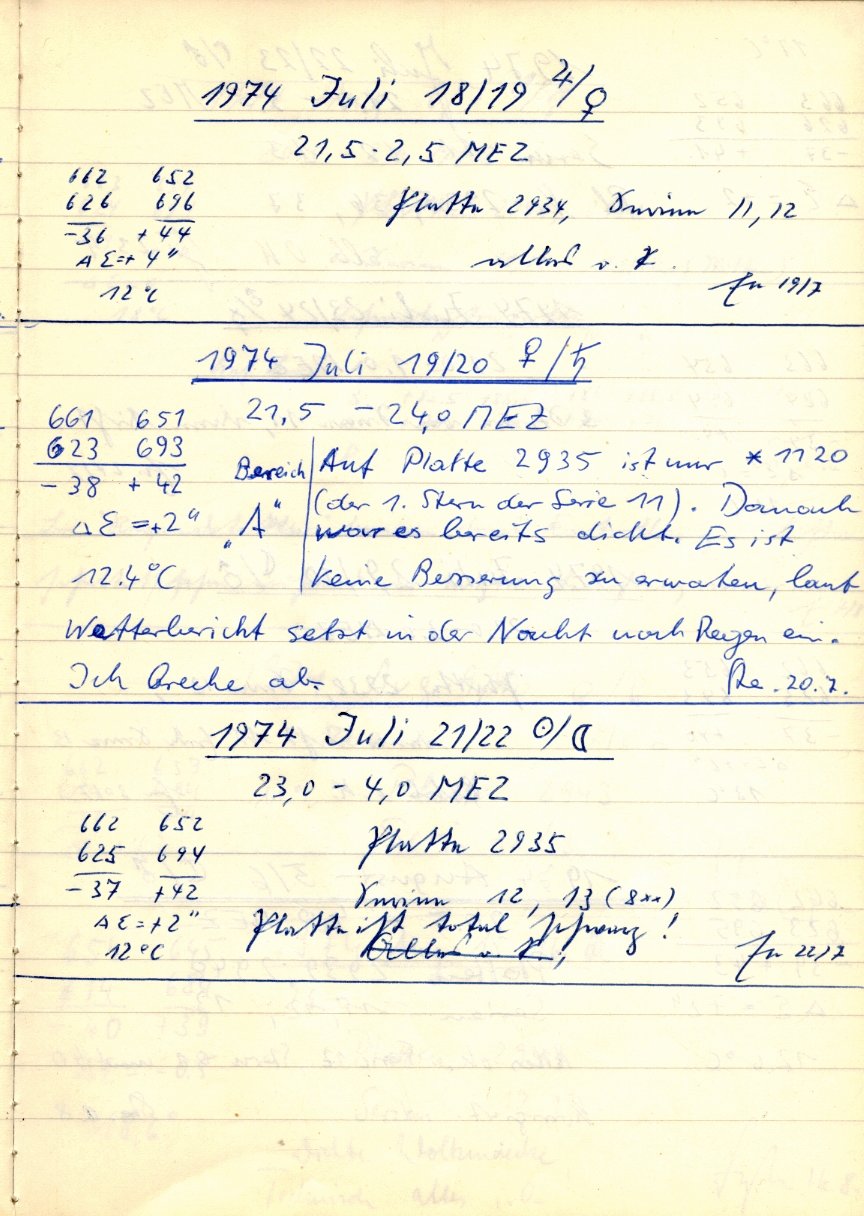 1974 Juli 18/19 ♃/♀
21,5-2,5 MEZ
662 652
626 696
-36 +44
Δ Σ=+4"
12°C
Platte 2934, Serien 11, 12
alles o.K.
19/7
1974 Juli 19/20 ♀/♄
21,5 - 24,0 MEZ
661 651
623 693
-38 +42
Δ Σ =+2"
12.4°C
Bereich
"A"
Auf Platte 2935 ist nur * 1120
(der 1. Stern der Serie 11). Danach
war es bereits dicht. Es ist
keine Besserung zu erwaten, laut
Wetterbericht setzt in der Nacht noch Regen ein.
Ich breche ab.
20.7.
1974 Juli 21/22 ☉/☾
23,0 - 4,0 MEZ
662 652
625 694
-37 +42
Δ Σ=+2"
12°C
Platte 2935
Serien 12, 13 (8**)
Platte ist total schwarz!
Alles o.K.!
22/7